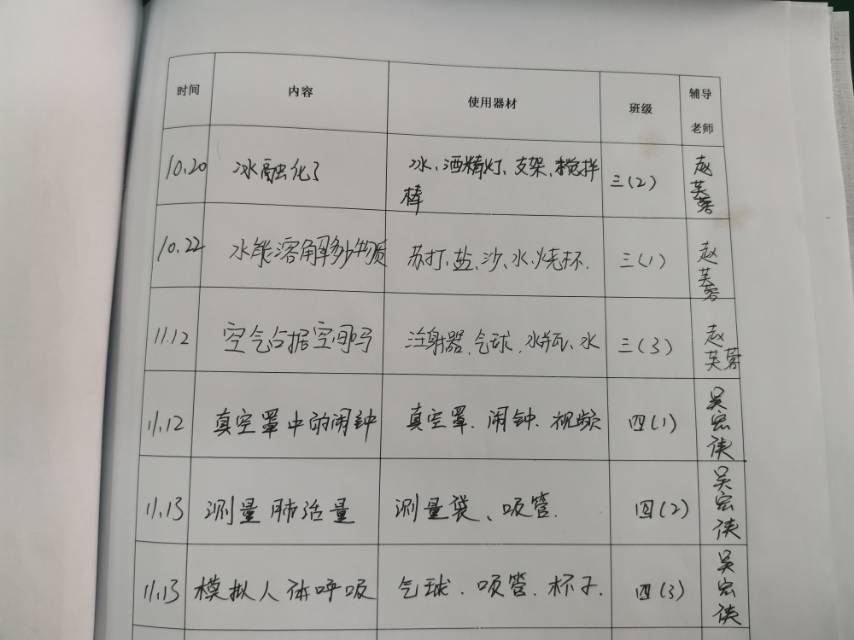 时间 内容 使用器材 班级 辅导老师
10.20 冰融化了 冰、酒精灯、支架、搅拌棒 三(2) 赵芙蓉
10.22 水能溶解多少物质 苏打、盐、沙、水、烧杯. 三(1) 赵芙蓉
11.12 空气占据空间吗 注射器、气球、水瓶、水 三(3) 赵芙蓉
11.12 真空罩中的闹钟 真空罩、闹钟、视频 四(1) 吴宏
11.13 测量肺活量 测量袋、吸管. 四(2) 吴宏
11.13 模拟人体呼吸 气球. 吸管. 杯子. 四(3) 吴宏